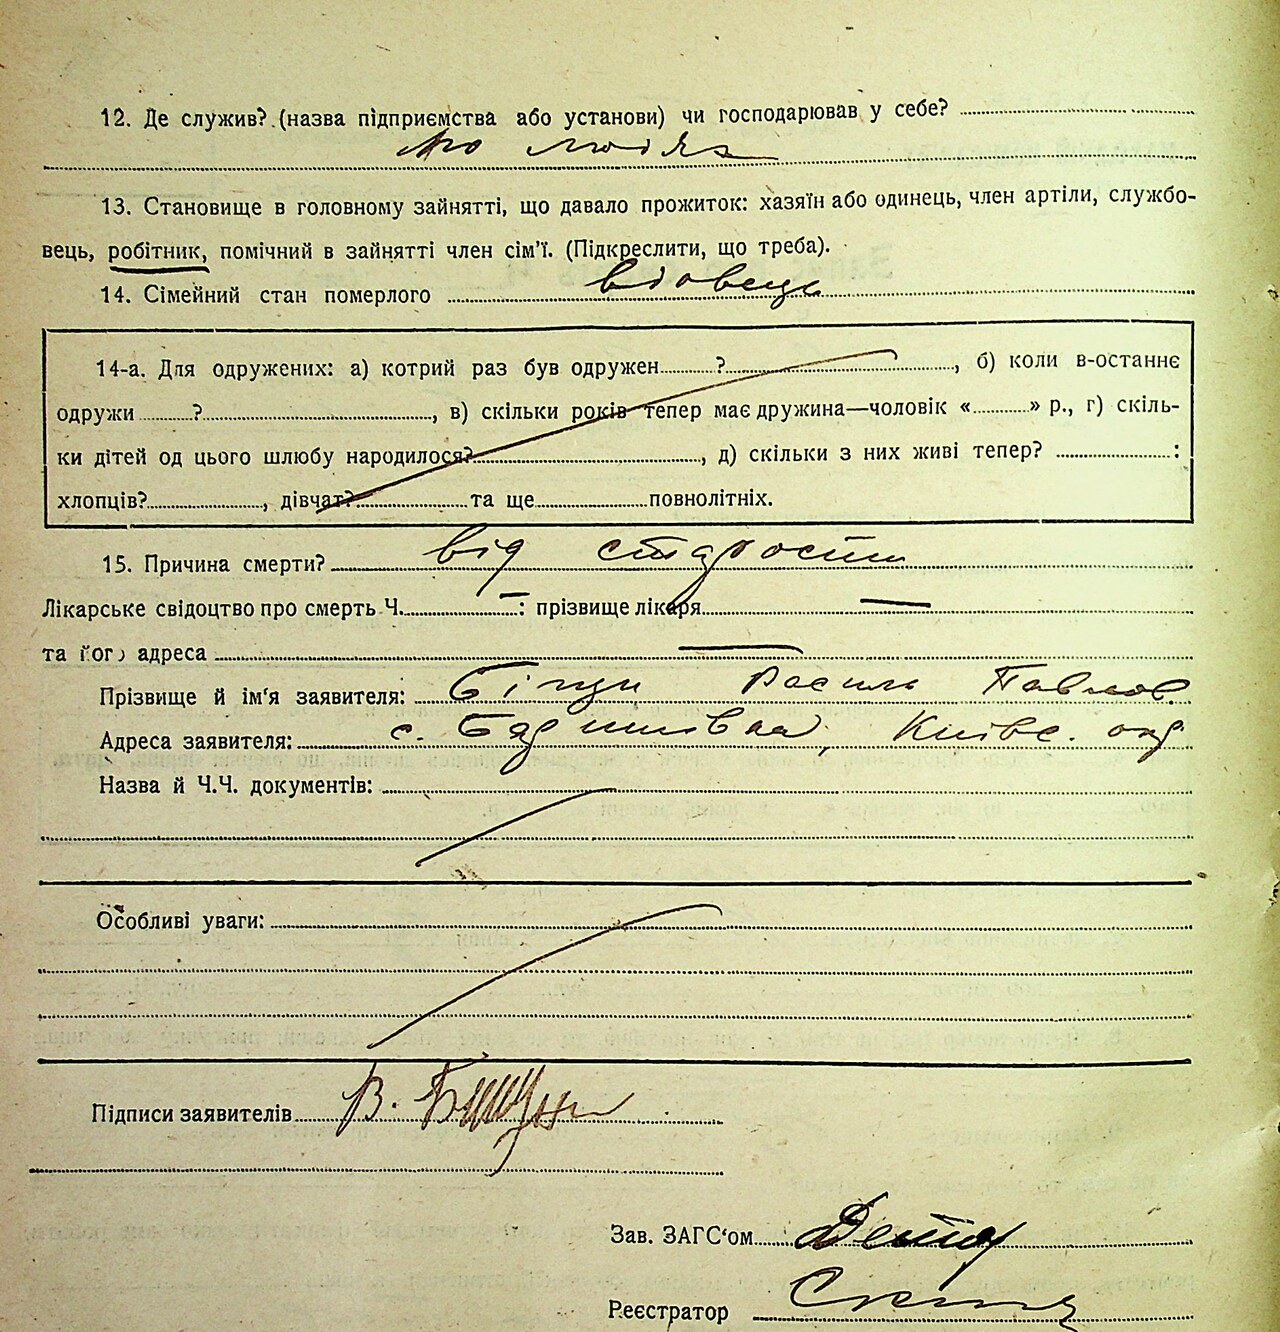 12. Де служив? (назва підприємства або установи) чи господарював у себе?
по людях
13. Становище в головному зайнятті, що давало прожиток: хазяїн або одинець, член артіли, службо-
вець, робітник, помічний в зайнятті член сім'ї. (Підкреслити, що треба).
14. Сімейний стан померлого вдовець
14-а. Для одружених: а) котрий раз був одружен ?, б) коли в-останнє
одружи ?, в) скільки років тепер має дружина—чоловік « » р., г) скіль-
ки дітей од цього шлюбу народилося?, д) скільки з них живі тепер? :
хлопців?, дівчат? та ще повнолітніх.
15. Причина смерти? від старости
Лікарське свідоцтво про смерть Ч. — : прізвище лікаря —
та його адреса —
Прізвище й ім'я заявителя: Василь Павлов.
Адреса заявителя: с. Київс. окр
Назва й Ч.Ч. документів:
Особливі уваги:
Підписи заявителів В.
Зав. ЗАГС'ом
Реєстратор